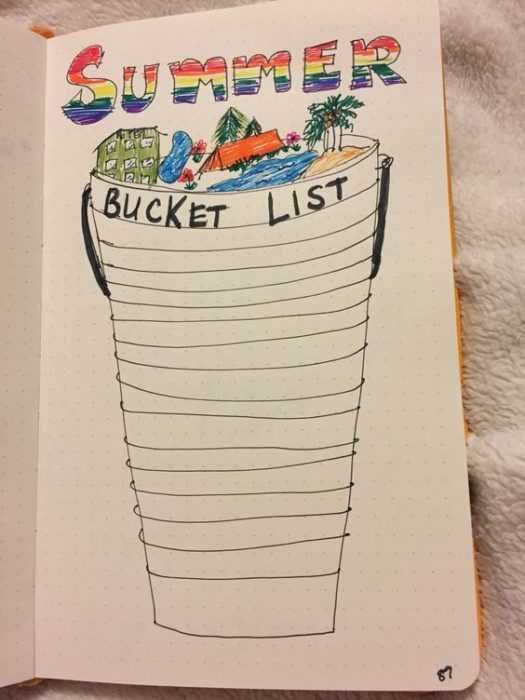 SUMMER
HOTEL
BUCKET LIST
87